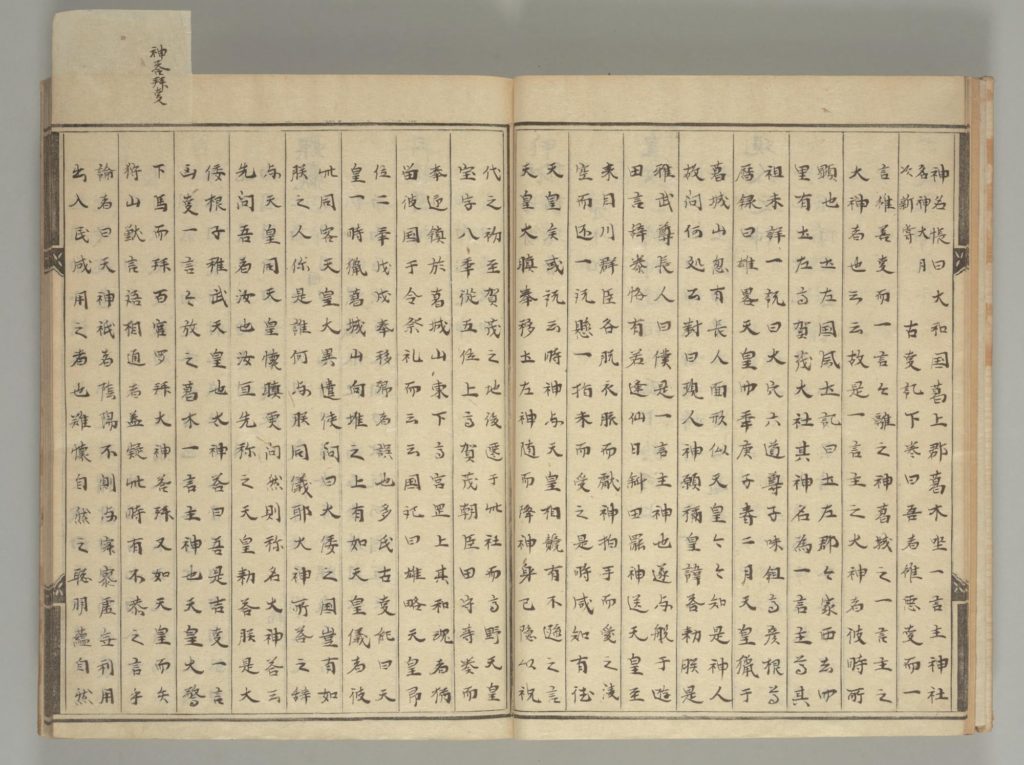 神答拜叓
神名帳曰大和国葛上郡葛木坐一言主神社
名神大月
次新嘗
古叓記下巻曰吾者雖悪叓而一
言雖善叓而一言々離之神葛城之一言主之
大神者也云故是一言主之大神名彼時所
顕也土左国風土記曰土左郡々家西去四
里有土左高賀茂大社其神名為一言主尊其
祖未詳一説曰大穴六道尊子味鉏高彦根尊
暦録曰雄畧天皇四年庚子春二月天皇獵于
葛城山忽有長人面形似天皇々々知是神人
故問何処公對曰現人神願稱皇諱答勅朕是
雅武尊長人曰僕是一言主神也遂与般于遊
田言詞恭恪有若逢仙日斜田罷神送天皇至
来目川群臣各脱衣服而獻神拍手而受之浅
空而還一説懸一指来而受之是時咸知有徳
天皇矣或説云時神与天皇相競有不遜之言
天皇大瞋奉移土左神随而降神身已隠以祝
代之初至賀茂之地後遷于此社而高野天皇
宝字八年從五位上高賀茂朝臣田守等奏而
奉迎鎮於葛城山東下高宮罡上其和魂為猶
留彼国于令祭礼而云云国記曰雄略天皇即
位二年戊戌奉移帰者誤也多氏古叓紀曰天
皇一時獵葛城山向堆之上有如天皇儀為彼
此同容天皇大異遣使問曰大倭之国豈有如
朕之人你是誰何与朕同儀耶大神所答之辞
与天皇同天皇懐瞋更問然則称名大神答云
先問吾者汝也汝宜先称之天皇勅答朕是大
倭根子稚武天皇也大神答曰吾是吉叓一言
凶叓一言々放之葛木一言主神也天皇大驚
下馬而拜百官罗拜大神答拜又如天皇而矢
狩山歓言語相通者盖疑此時有不恭之言乎
論者曰天神祇為陰陽不測与寂寥虚無利用
出入民咸用之者也雖懐自然之聡明蘊自然